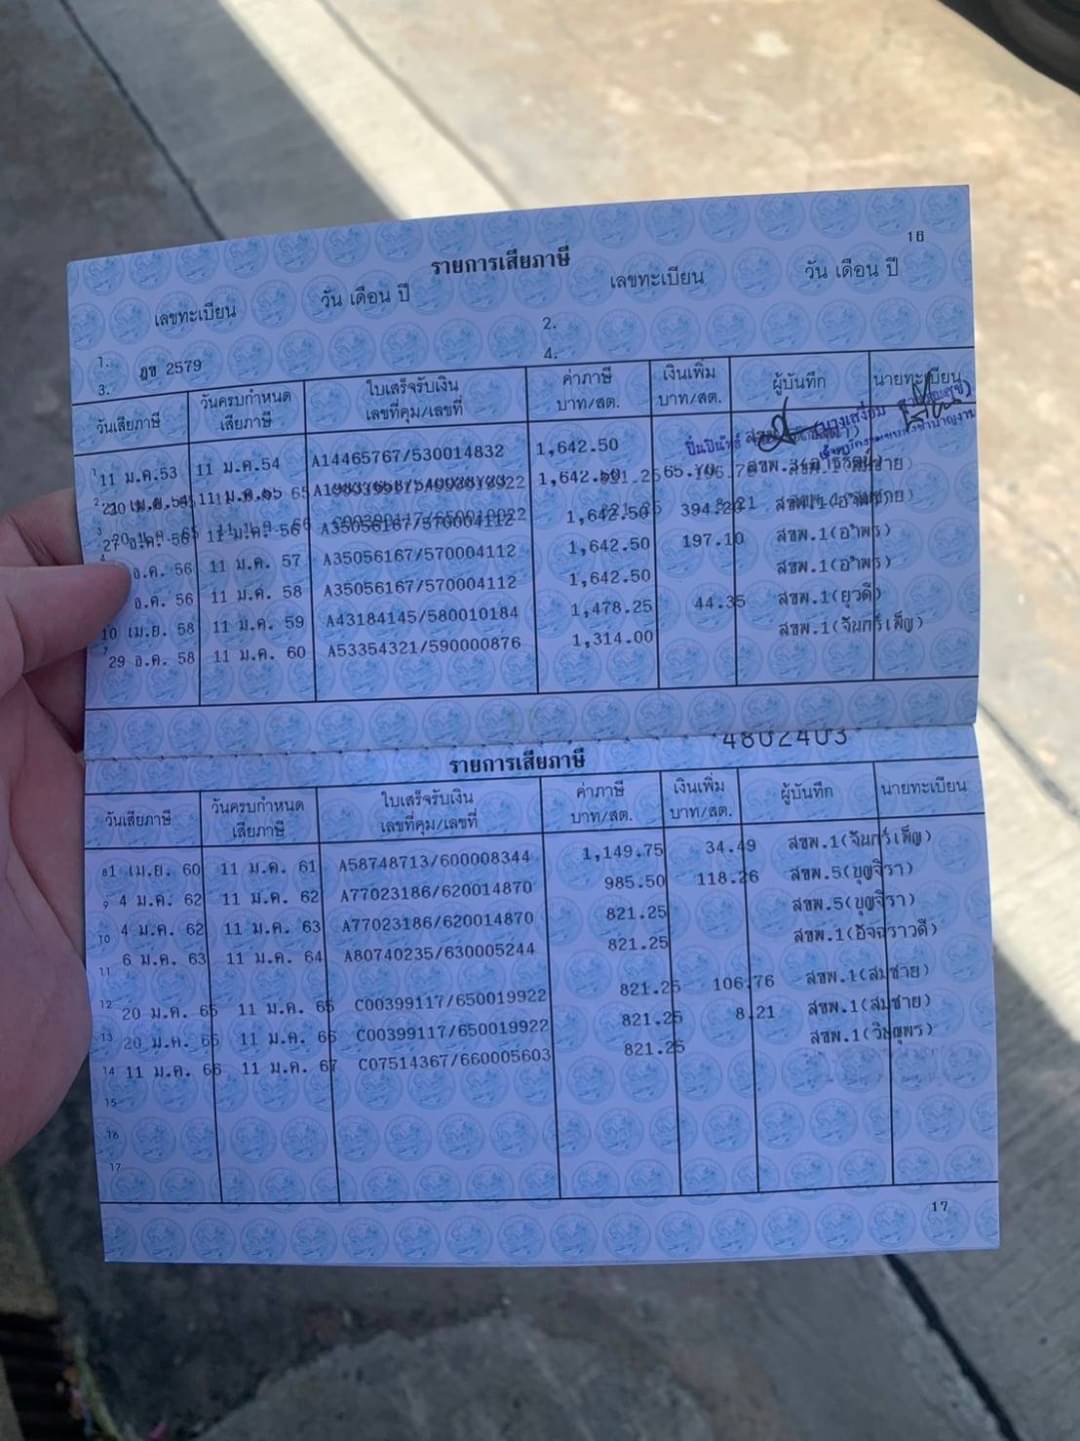 16
รายการเสียภาษี
เลขทะเบียน วัน เดือน ปี เลขทะเบียน วัน เดือน ปี
1. 2.
3. ฎข 2579 4.
วันเสียภาษี วันครบกำหนดเสียภาษี ใบเสร็จรับเงิน เลขที่คุม/เลขที่ ค่าภาษี บาท/สต. เงินเพิ่ม บาท/สต. ผู้บันทึก นายทะเบียน
1 11 ม.ค.53 11 ม.ค.54 A14465767/530014832 1,642.50
2 1,642.50 65.70
3 27 ธ.ค. 56 11 ม.ค. 56 A35056167/570004112 1,642.50 394.20
ธ.ค. 56 11 ม.ค. 57 A35056167/570004112 1,642.50 197.10 สขพ.1(อำพร)
ธ.ค. 56 11 ม.ค. 58 A35056167/570004112 1,642.50 สขพ.1(อำพร)
10 เม.ย. 58 11 ม.ค. 59 A43184145/580010184 1,478.25 44.35 สขพ.1(ยุวดี)
7 29 ธ.ค. 58 11 ม.ค. 60 A53354321/590000876 1,314.00 สขพ.1(จันทร์เพ็ญ)
4802403
รายการเสียภาษี
วันเสียภาษี วันครบกำหนดเสียภาษี ใบเสร็จรับเงิน เลขที่คุม/เลขที่ ค่าภาษี บาท/สต. เงินเพิ่ม บาท/สต. ผู้บันทึก นายทะเบียน
8 1 เม.ย. 60 11 ม.ค. 61 A58748713/600008344 1,149.75 34.49 สขพ.1(จันทร์เพ็ญ)
9 4 ม.ค. 62 11 ม.ค. 62 A77023186/620014870 985.50 118.26 สขพ.5(บุญจิรา)
10 4 ม.ค. 62 11 ม.ค. 63 A77023186/620014870 821.25 สขพ.5(บุญจิรา)
11 6 ม.ค. 63 11 ม.ค. 64 A80740235/630005244 821.25 สขพ.1(อัจฉราวดี)
12 20 ม.ค. 65 11 ม.ค. 65 C00399117/650019922 821.25 106.76 สขพ.1(สมชาย)
13 20 ม.ค. 65 11 ม.ค. 66 C00399117/650019922 821.25 8.21 สขพ.1(สมชาย)
14 11 ม.ค. 66 11 ม.ค. 67 C07514367/660005603 821.25 สขพ.1(วิษณุพร)
15
16
17
17